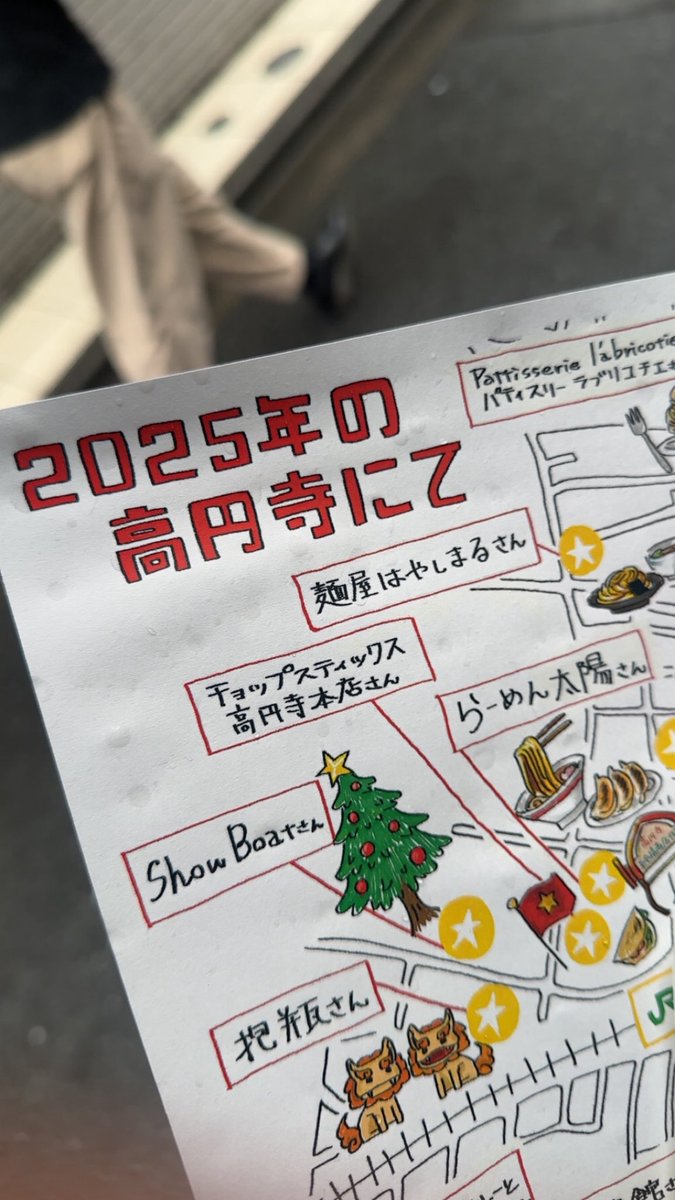 2025年の
高円寺にて
Pattisserie l'abricotie
パティスリー ラブリコチエ
麺屋はやしまるさん
チョップスティックス
高円寺本店さん
らーめん太陽さん
Show Boatさん
抱瓶さん
JR